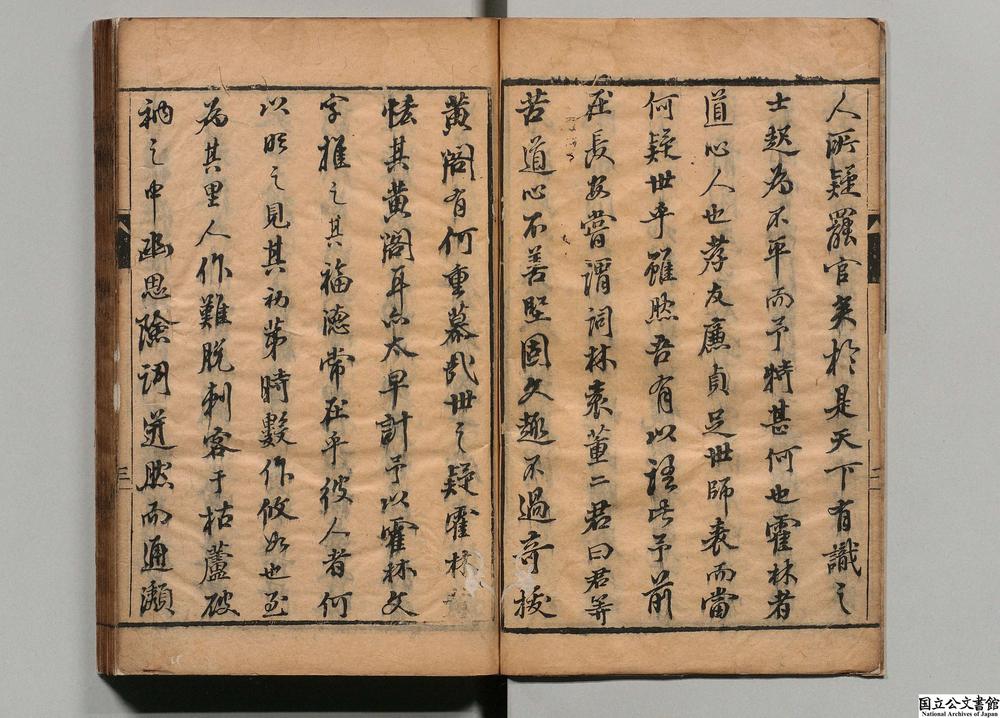 人所疑罷官矣於是天下有識之
士起為不平而予特甚何也霍林者
道心人也孝友廉貞足世師表而當
何疑世乎雖然吾有以証此予前
在長安嘗謂詞林袁董二君曰君等
苦道心不善堅固文趣不過奇拔
黃閣有何重慕哉世之疑霍林者
怯其黃閣耳亦太早計予以霍林文
字推之其福德常在乎彼人者何
以明之見其初第時數作攸如也至
為其里人作難脫刺客于枯蘆破
衲之中幽思險調迸然而通瀬
二
三
国立公文書館
National Archives of Japan